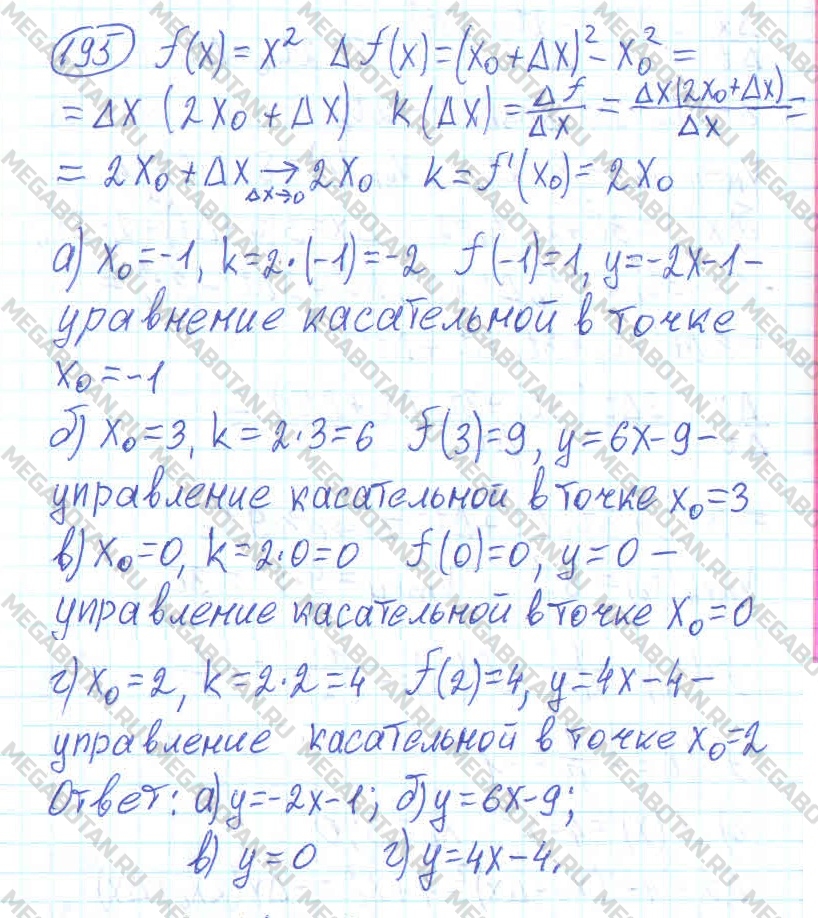 195 f(x) = x² Δf(x) = (x₀+Δx)² - x₀² =
= Δx (2x₀ + Δx) k(Δx) = Δf/Δx = Δx(2x₀+Δx)/Δx =
= 2x₀ + Δx →Δx→0 2x₀ k = f'(x₀) = 2x₀
а) x₀ = -1, k = 2·(-1) = -2 f(-1) = 1, y = -2x-1 -
уравнение касательной в точке
x₀ = -1
б) x₀ = 3, k = 2·3 = 6 f(3) = 9, y = 6x-9 -
управление касательной в точке x₀ = 3
в) x₀ = 0, k = 2·0 = 0 f(0) = 0, y = 0 -
управление касательной в точке x₀ = 0
г) x₀ = 2, k = 2·2 = 4 f(2) = 4, y = 4x-4 -
управление касательной в точке x₀ = 2
Ответ: а) y = -2x-1; б) y = 6x-9;
в) y = 0 г) y = 4x-4.
MEGABOTAN.RU